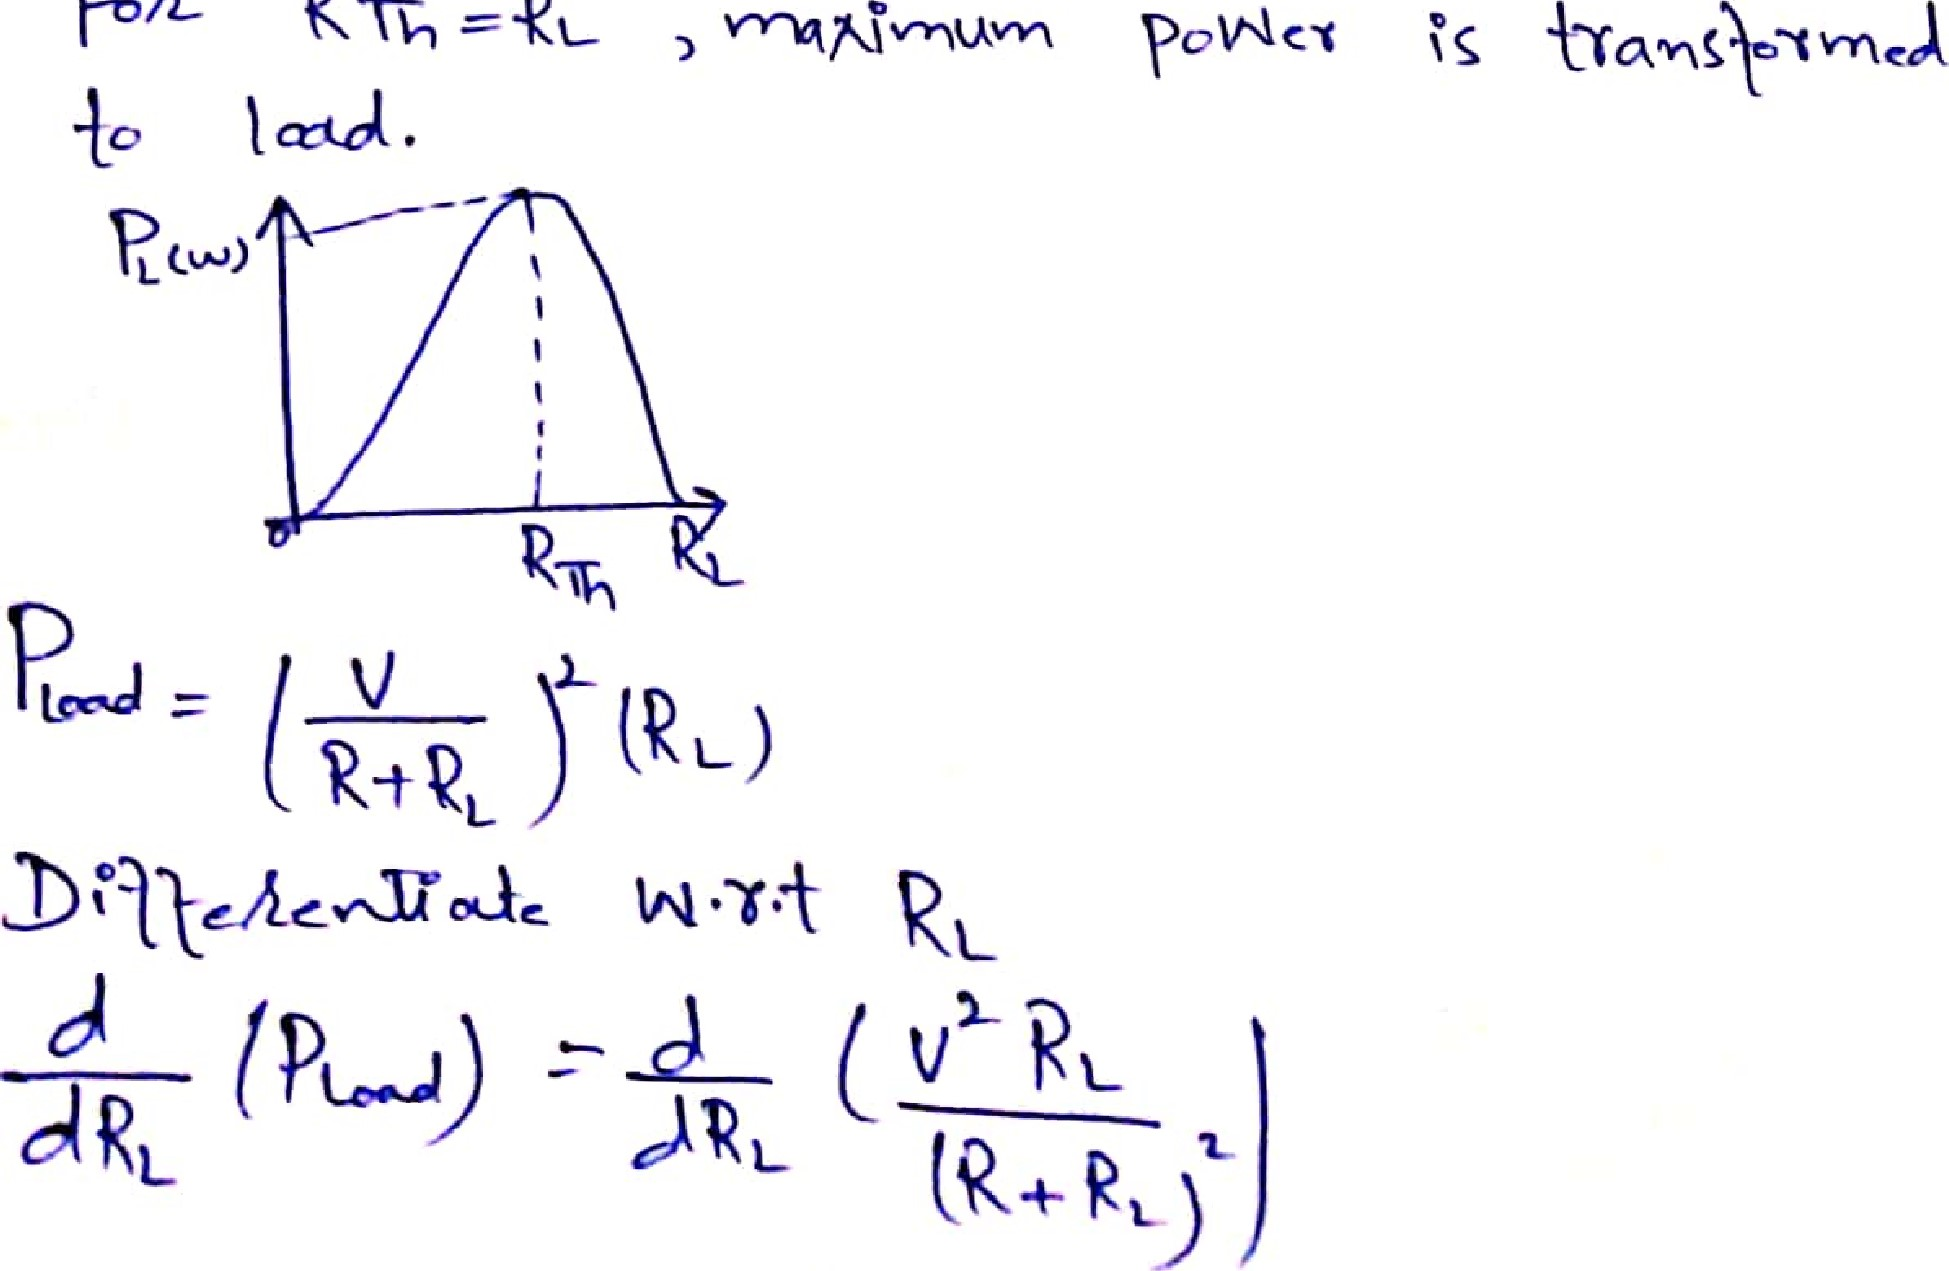 For RTh = RL , maximum power is transformed
to load.
PL(W)
0
RTh RL
Pload = (V / (R+RL))² (RL)
Differentiate w.r.t RL
d/dRL (PLoad) = d/dRL (V² RL / (R+RL)²)